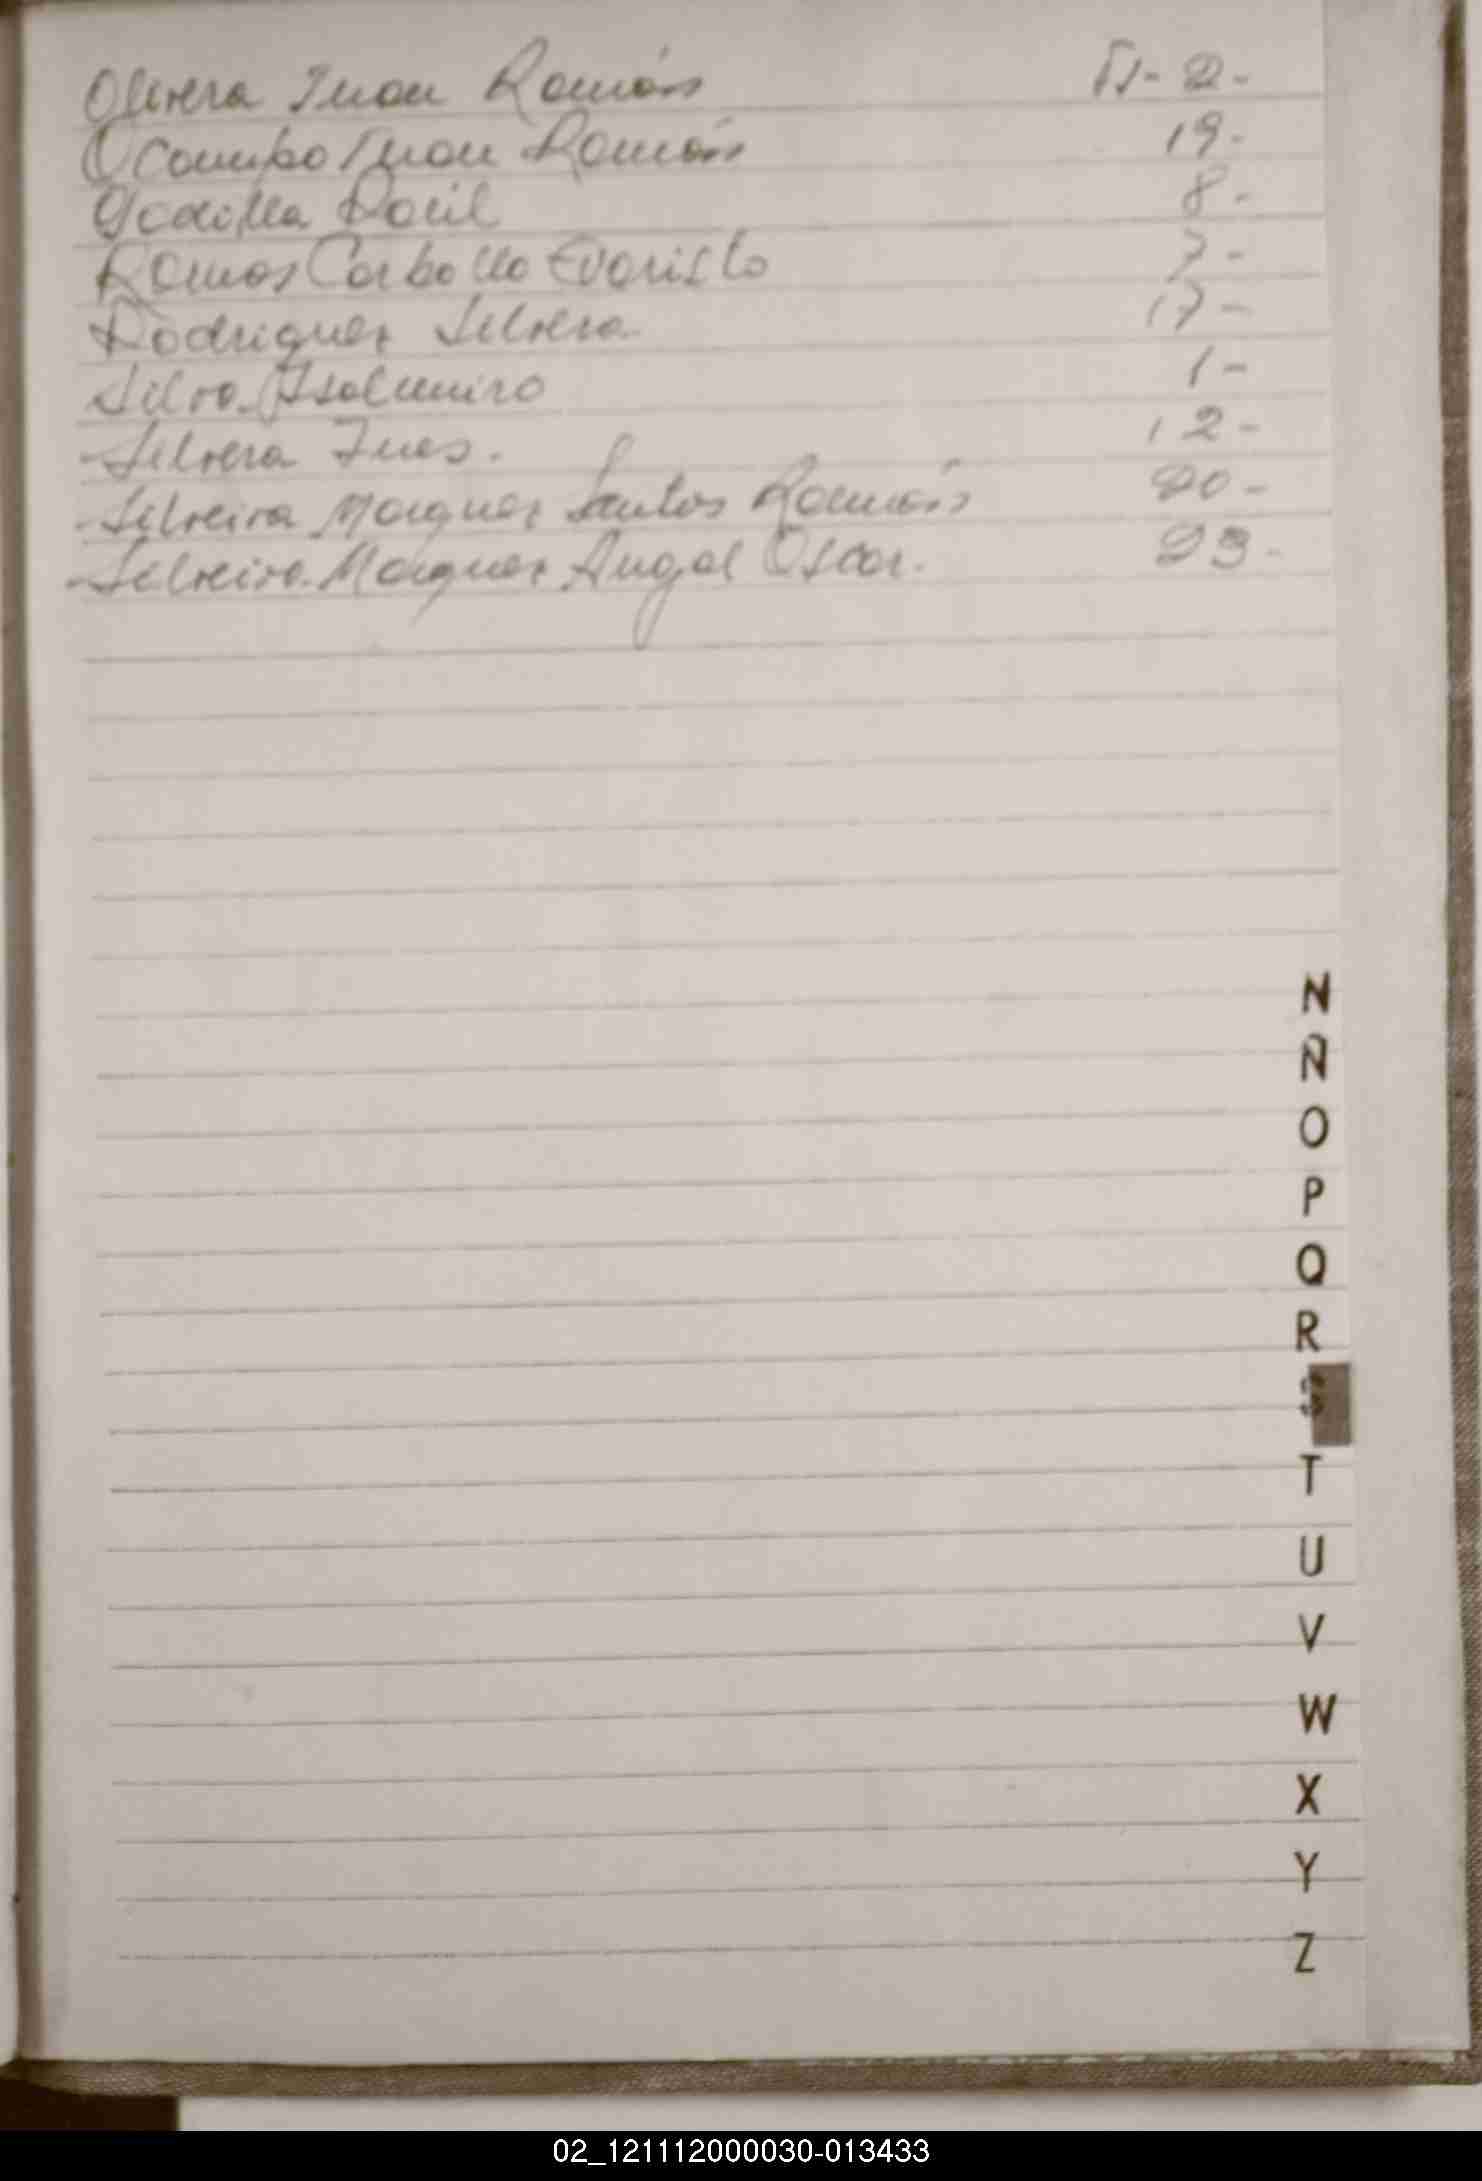 Olivera Juan Ramón Fs- 2-
Ocampo Juan Ramón 19-
Padilla Raúl 8-
Ramos Carballo Evaristo 7-
Rodriguez Silvera 17-
Silva Isolmiro 1-
Silvera Ines. 12-
Silveira Marquez Santos Ramón 20-
Silveira Marquez Angel Oscar. 23-
N
Ñ
O
P
Q
R
S
T
U
V
W
X
Y
Z
02_121112000030-013433